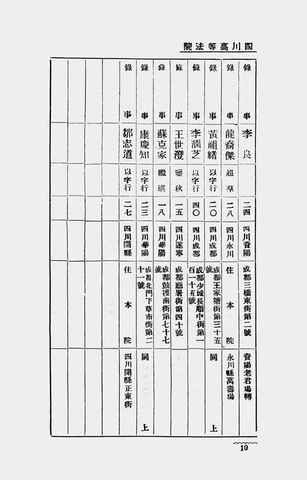 四川高等法院
錄事 李良 二四 四川資陽 成都三橋東街第二號 資陽老君場轉
錄事 龍裔傑 超羣 二八 四川永川 住本院 永川縣萬壽場
錄事 黃祖緒 以字行 二〇 四川成都 成都王家塘街第三十五號 同上
錄事 李潤芝 以字行 四〇 四川成都 成都少城長順中街第一百一十五號
錄事 王世澄 秋 一五 四川遂寧 成都廳署街第四十號
錄事 蘇克家 一八 四川華陽 成都鼓樓南街第七十七號
錄事 康慶知 以字行 二三 四川華陽 成都北門下草市街第二十一號 同上
錄事 鄒志道 以字行 二七 四川開縣 住本院 四川開縣正東街
19